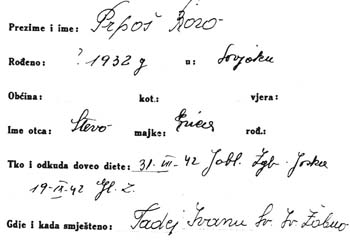 Prezime i ime: Prpoš Božo
Rođeno: ? 1932 g u: Sovjaku
Općina: kot.: vjera:
Ime otca: Stevo majke: rod.:
Tko i odkuda doveo diete: 31. III. 42 Jabl. Zgb. Joska
19-IX-42 Gl. Z.
Gdje i kada smješteno: Tadej Ivanu Sv. Iv. Žabno